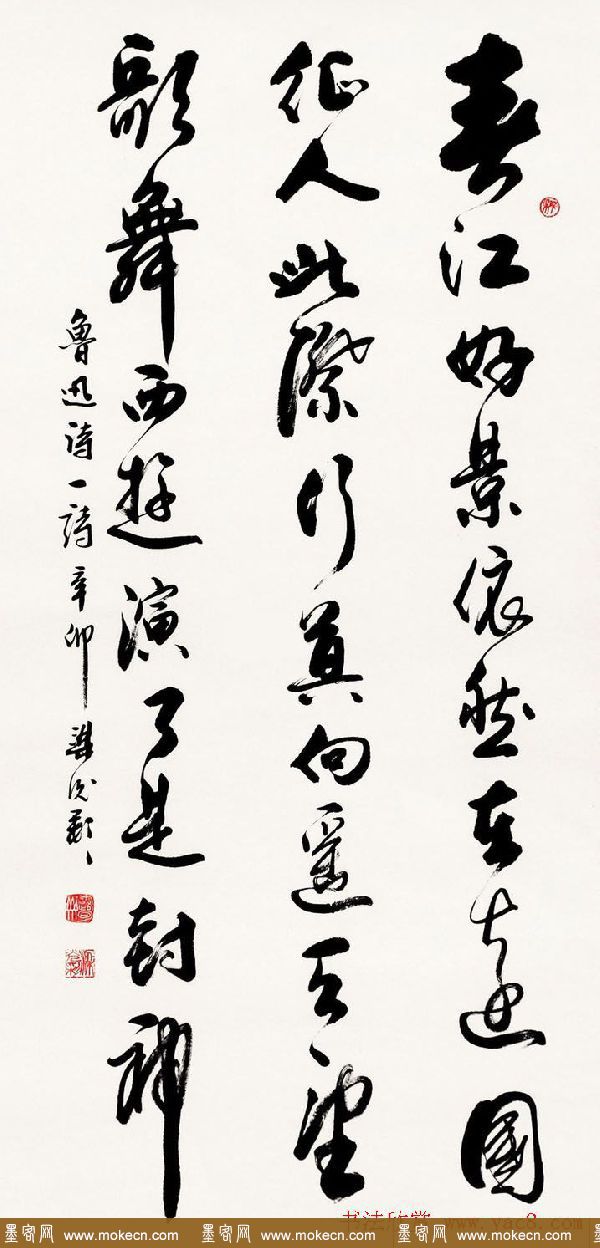 春江好景依然在远國
征人此際行莫向遥天望
歌舞西遊演了是封神
魯迅诗一詩 辛卯 梁
书法欣赏 www.yac8.com
墨客网 www.mokecn.com 墨客网 www.mokecn.com 墨客网 www.mokecn.com